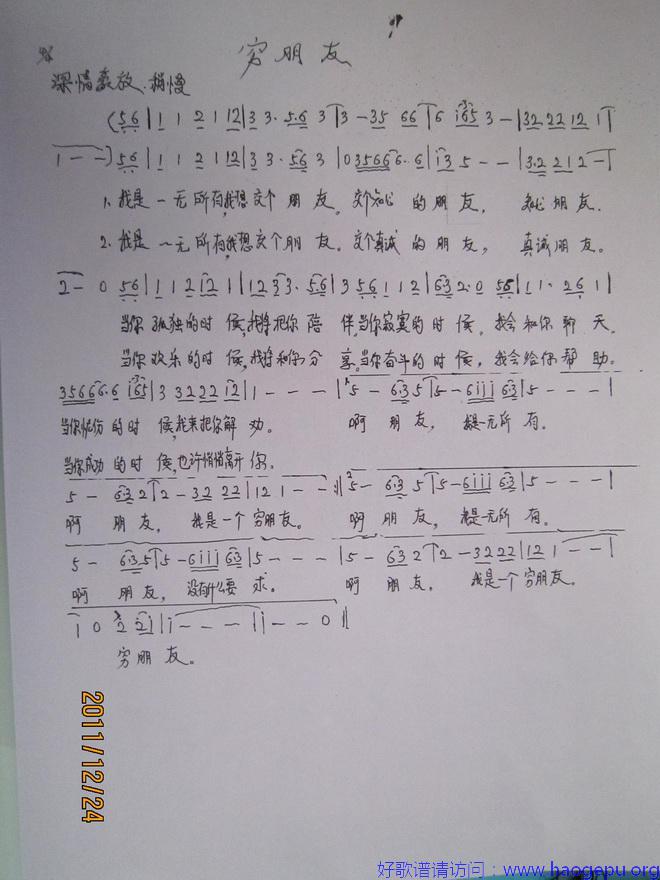 穷朋友
深情豪放 稍慢
(56|1 1 2 1 12|3 3· 5·6 3|3 - 35 66|6 i65 3 -|32 22 12 1|
1 - -)56|1 1 2 1 12|3 3· 56 3|0 35666·6|i 3 5 - -|3·2 2 1 2 -|
1. 我是一无所有,我想交个朋友。交个知心的朋友，知心朋友.
2. 我是一无所有,我想交个朋友。交个真诚的朋友，真诚朋友。
2 - 0 56|1 1 2 12 1|12 33· 56|3 56 1 1 2|63 2·0 56|1 1· 2 6 1|
当你孤独的时候,我将把你陪伴,当你寂寞的时候，我会和你聊天。
当你欢乐的时候,我将和你分享。当你奋斗的时候，我会给你帮助。
356666·6 i65|3 32 22 12|1 - - -|5 - 6·3 5|5 - 6iii 63|5 - - -|
当你忧伤的时候,我来把你解劝。 啊 朋友， 我是一无所有。
当你成功的时候,也许悄悄离开你.
5 - 6·3 2|2 - 32 22|12 1 - -:||5 - 6·3 5|5 - 6iii 63|5 - - -|
啊 朋友， 我是一个穷朋友。 啊 朋友， 我是一无所有。
5 - 6·3 5|5 - 6iii 63|5 - - -|5 - 63 2|2 - 32 22|12 1 - -|
啊 朋友， 没有什么要求。 啊 朋友， 我是一个穷朋友。
1 0 2 2i|i - - -|i - - 0||
穷朋友。
2011/12/24
好歌谱请访问：www.haogepu.org